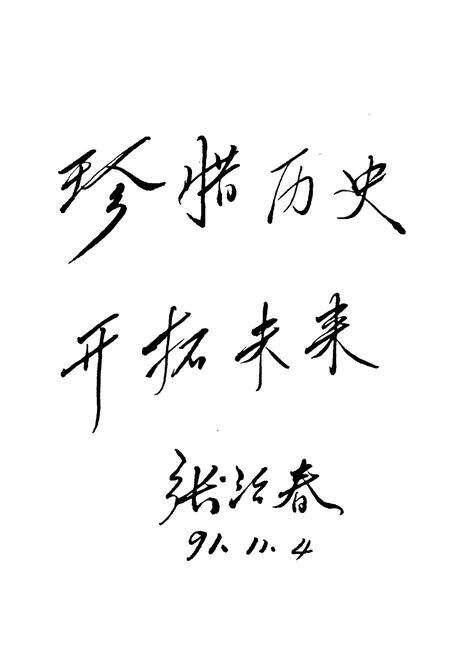 珍惜历史
开拓未来
张治春
91.11.4